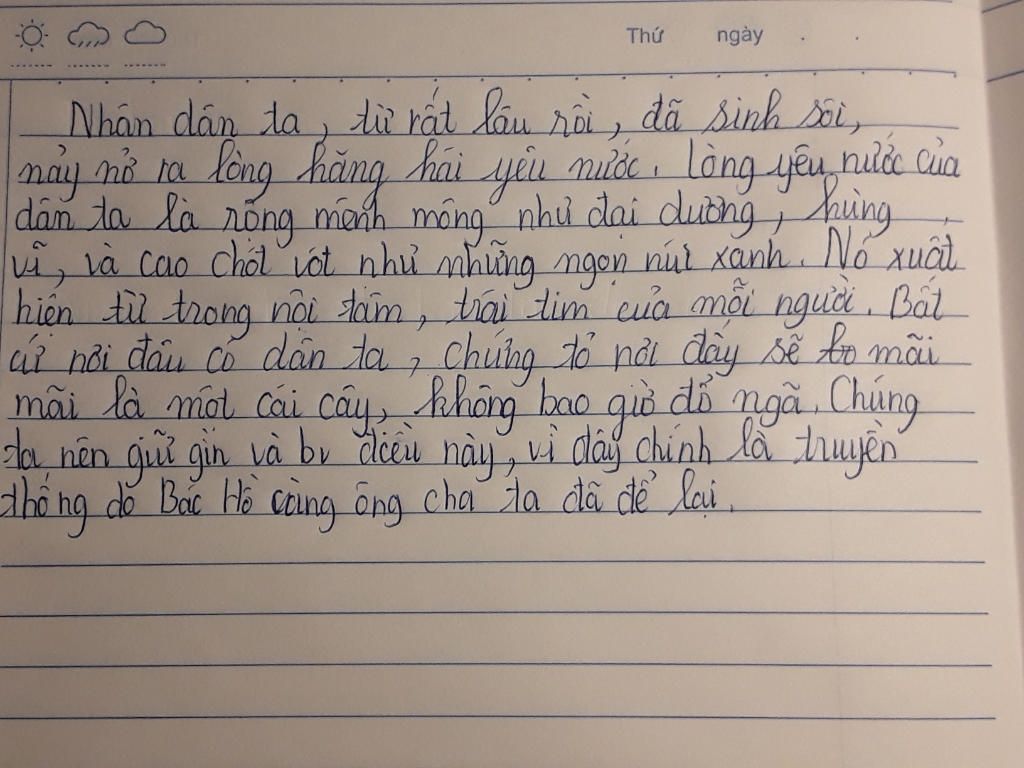 Thứ ngày . .
Nhân dân ta, từ rất lâu rồi, đã sinh sôi,
nảy nở ra lòng hăng hái yêu nước. Lòng yêu nước của
dân ta là rộng mênh mông như đại dương, hùng
vĩ, và cao chót vót như những ngọn núi xanh. Nó xuất
hiện từ trong nội tâm, trái tim của mỗi người. Bất
cứ nơi đâu có dân ta, chứng tỏ nơi đấy sẽ mãi
mãi là một cái cây, không bao giờ đổ ngã. Chúng
ta nên giữ gìn và bv điều này, vì đây chính là truyền
thống do Bác Hồ cùng ông cha ta đã để lại.